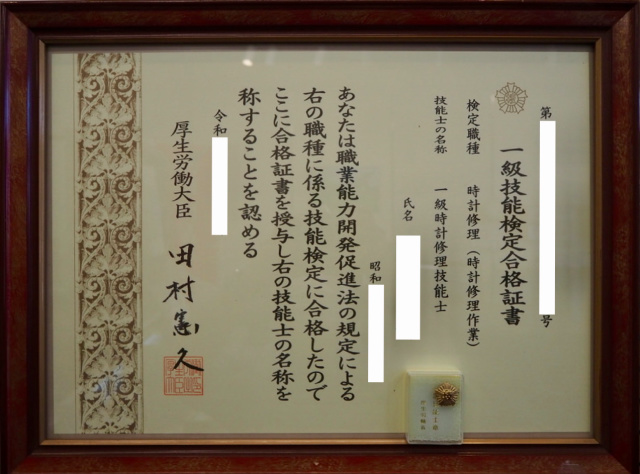 第
号
一級技能検定合格証書
検定職種 時計修理（時計修理作業）
技能士の名称 一級時計修理技能士
氏名
昭和
あなたは職業能力開発促進法の規定による
右の職種に係る技能検定に合格したので
ここに合格証書を授与し右の技能士の名称を
称することを認める
令和
厚生労働大臣 田村憲久